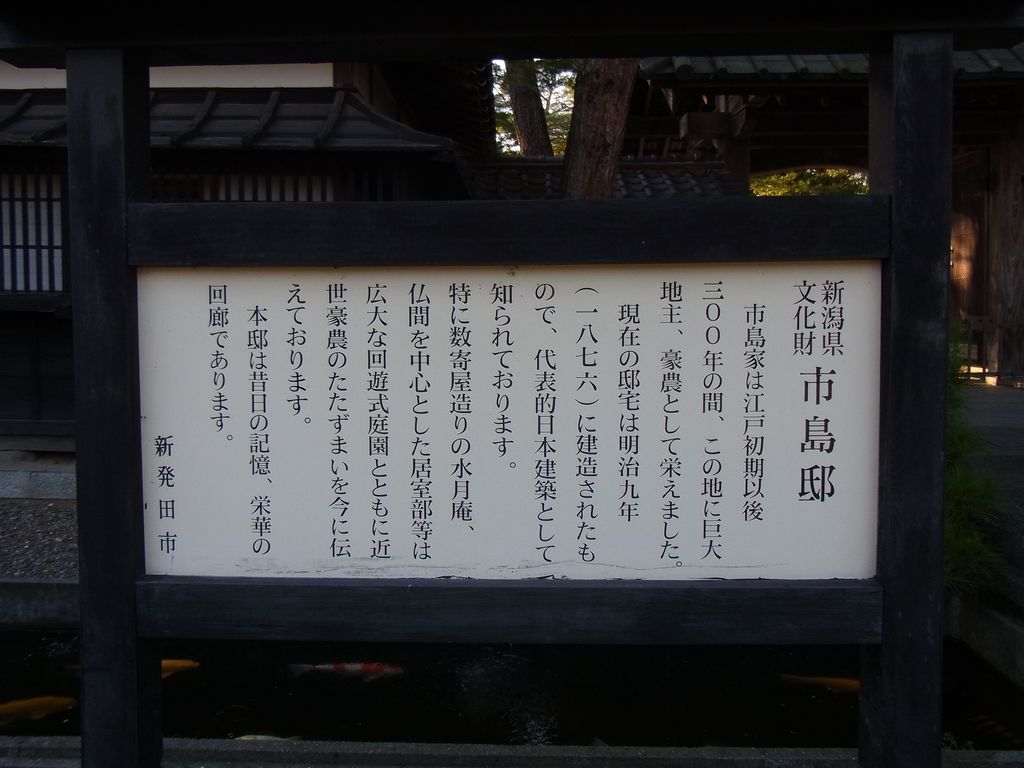 新潟県
文化財
市島邸
市島家は江戸初期以後
三〇〇年の間、この地に巨大
地主、豪農として栄えました。
現在の邸宅は明治九年
(一八七六)に建造されたも
ので、代表的日本建築として
知られております。
特に数寄屋造りの水月庵、
仏間を中心とした居室部等は
広大な回遊式庭園とともに近
世豪農のたたずまいを今に伝
えております。
本邸は昔日の記憶、栄華の
回廊であります。
新発田市